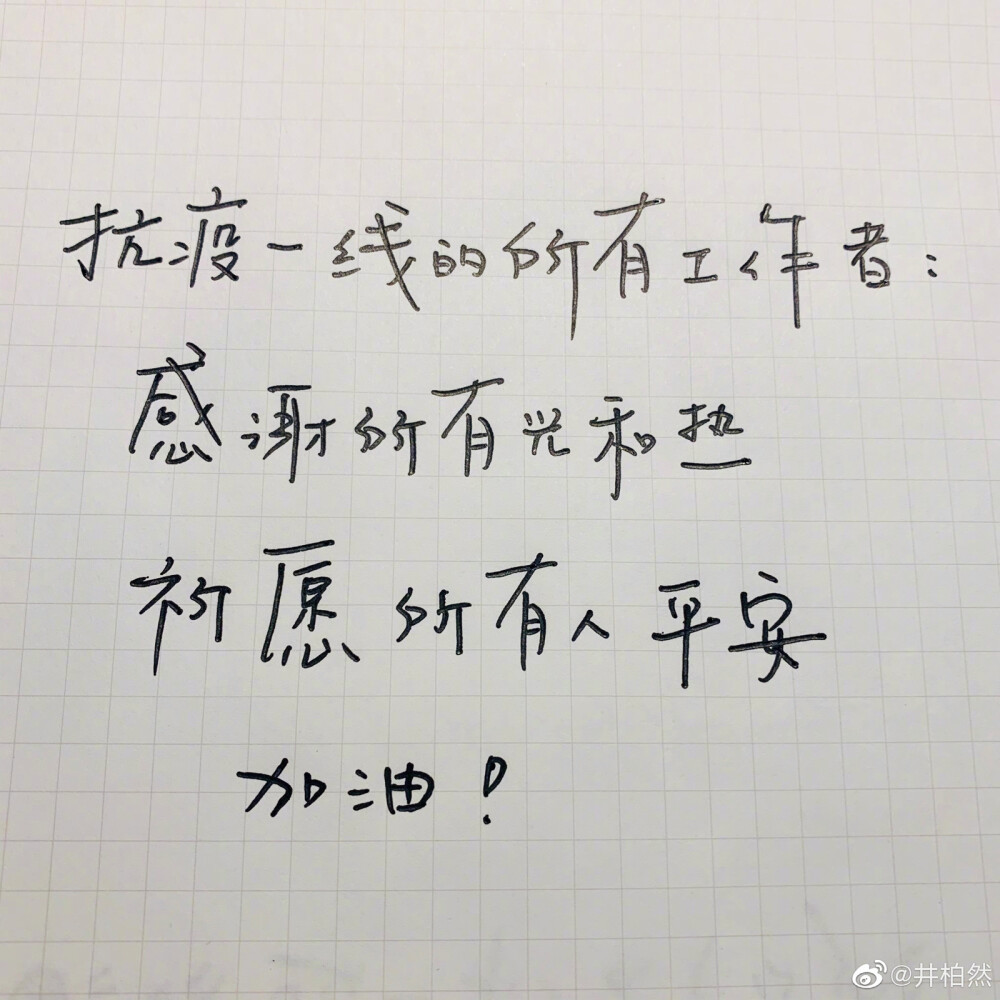 抗疫一线的所有工作者:
感谢所有光和热
祈愿所有人平安
加油!
@井柏然